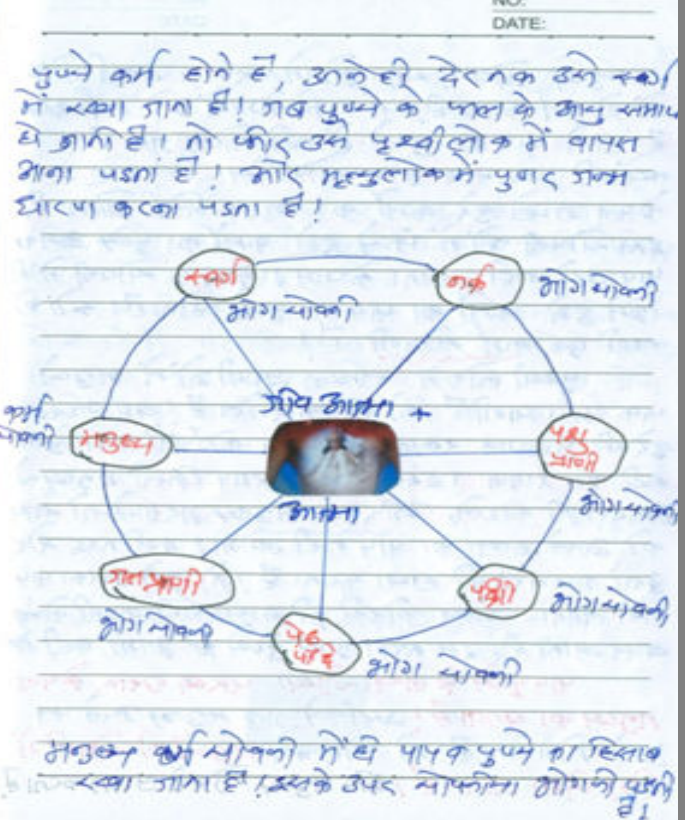 NO.
DATE:
पुण्ये कर्म होते है, उतने ही देर तक उसे स्वर्ग
में रखा जाता है! जब पुण्ये के फल के आयु समाप्त
हो जाती है! तो फीर उसे पृथ्वीलोक में वापस
आना पडता है! और मृत्युलोक में पुनर जन्म
धारण करना पडता है!
स्वर्ग
नर्क
भोग योवनी
भोग योवनी
जीव आत्मा +
कर्म
योवनी
मनुष्य
पशु
प्राणी
भोग योवनी
आत्मा
जल प्राणी
पक्षी
भोग योवनी
भोग योवनी
पेड
पौदे
भोग योवनी
मनुष्य कर्म योवनी में ही पाप व पुण्ये का हिसाब
रखा जाता है! इसके उपर योवनीया भोगनी पडती
है!